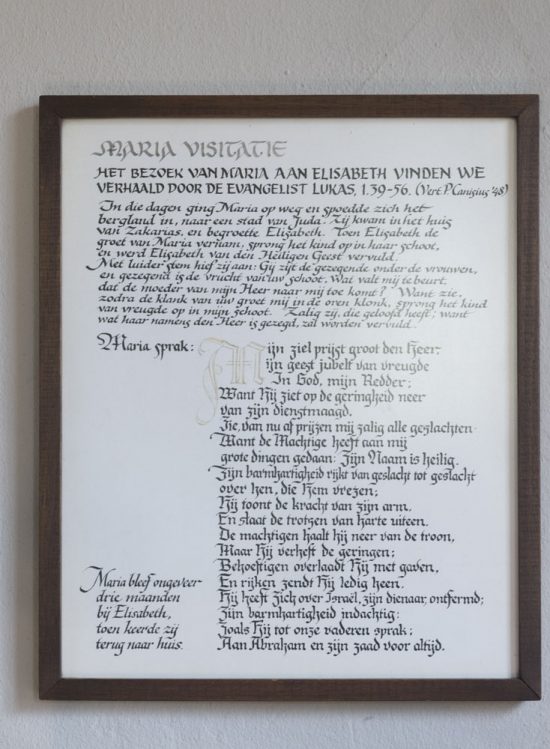 MARIA VISITATIE
HET BEZOEK VAN MARIA AAN ELISABETH VINDEN WE
VERHAALD DOOR DE EVANGELIST LUKAS, 1.39-56. (Vert P. Canisius '48)
In die dagen ging Maria op weg en spoedde zich het
bergland in, naar een stad van Juda. Zij kwam in het huis
van Zakarias, en begroette Elisabeth. Toen Elisabeth de
groet van Maria vernam, sprong het kind op in haar schoot,
en werd Elisabeth van den Heiligen Geest vervuld.
Met luider stem hief zij aan: Gij zijt de gezegende onder de vrouwen,
en gezegend is de vrucht van uw schoot. Wat valt mij te beurt,
dat de moeder van mijn Heer naar mij toe komt? Want zie,
zodra de klank van uw groet mij in de oren klonk, sprong het kind
van vreugde op in mijn schoot. Zalig zij, die geloofd heeft; want
wat haar namens den Heer is gezegd, zal worden vervuld.
Maria sprak: Mijn ziel prijst groot den Heer.
ijn geest jubelt van vreugde
In God, mijn Redder;
Want Hij ziet op de geringheid neer
van zijn dienstmaagd.
Zie, van nu af prijzen mij zalig alle geslachten.
Want de Machtige heeft aan mij
grote dingen gedaan: Zijn Naam is heilig.
Zijn barmhartigheid rijkt van geslacht tot geslacht
over hen, die Hem vrezen;
Hij toont de kracht van zijn arm.
En slaat de trotzen van harte uiteen.
De machtigen haalt hij neer van de troon,
Maar Hij verheft de geringen;
Behoeftigen overlaadt Hij met gaven,
En rijken zendt Hij ledig heen.
Hij heeft Zich over Israël, zijn dienaar, ontfermd;
Zijn barmhartigheid indachtig:
Zoals Hij tot onze vaderen sprak;
Aan Abraham en zijn zaad voor altijd.
Maria bleef ongeveer
drie maanden
bij Elisabeth,
toen keerde zij
terug naar huis.